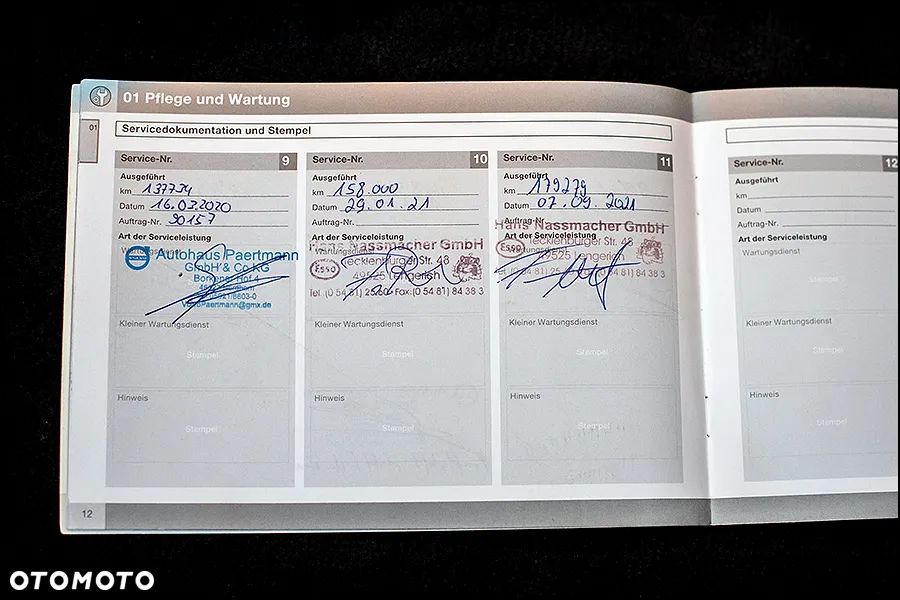 01 Pflege und Wartung
01
Servicedokumentation und Stempel
Service-Nr. 9
Ausgeführt
km 137734
Datum 16.03.2020
Auftrag-Nr. 90157
Art der Serviceleistung
Autohaus Paertmann
GmbH & Co KG
VolvoPaertmann@gmx.de
Kleiner Wartungsdienst
Stempel
Hinweis
Stempel
Service-Nr. 10
Ausgeführt
km 158.000
Datum 29.01.21
Auftrag-Nr.
Art der Serviceleistung
Hans Nassmacher GmbH
Esso
Tecklenburger Str. 48
49525 Lengerich
Tel. (0 54 81) 25 60 Fax: (0 54 81) 84 38 3
Kleiner Wartungsdienst
Stempel
Hinweis
Stempel
Service-Nr. 11
Ausgeführt
km 179279
Datum 07.09.2021
Auftrag-Nr.
Hans Nassmacher GmbH
Art der Serviceleistung
Esso
Tecklenburger Str. 48
49525 Lengerich
Kleiner Wartungsdienst
Stempel
Hinweis
Stempel
Service-Nr. 12
Ausgeführt
km
Datum
Auftrag-Nr.
Art der Serviceleistung
Wartungsdienst
Stempel
Kleiner Wartungsdienst
Stempel
Hinweis
Stempel
12
OTOMOTO